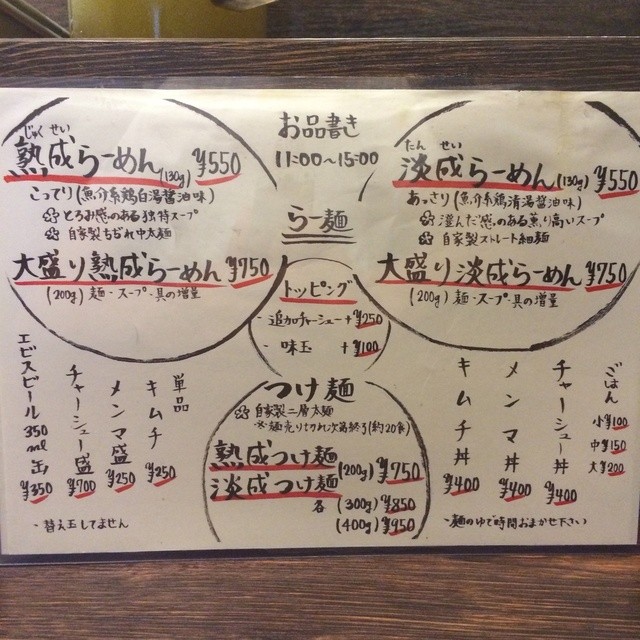 お品書き
11:00〜15:00
らー麺
じゅく せい
熟成らーめん(130g) ¥550
こってり(魚介系鶏白湯醤油味)
とろみ感のある独特スープ
自家製ちぢれ中太麺
大盛り熟成らーめん ¥750
(200g) 麺・スープ・具の増量
たん せい
淡成らーめん(130g) ¥550
あっさり(魚介系鶏清湯醤油味)
澄んだ感のある薫り高いスープ
自家製ストレート細麺
大盛り淡成らーめん ¥750
(200g) 麺・スープ・具の増量
トッピング
・追加チャーシュー + ¥250
・味玉 + ¥100
つけ麺
自家製二層太麺
※麺売り切れ次第終了(約20食)
熟成つけ麺 (200g) ¥750
淡成つけ麺
各 (300g) ¥850
(400g) ¥950
単品
キムチ ¥250
メンマ盛 ¥250
チャーシュー盛 ¥700
エビスビール350ml缶 ¥350
・替え玉してません
ごはん
小¥100
中¥150
大¥200
チャーシュー丼 ¥400
メンマ丼 ¥400
キムチ丼 ¥400
・麺のゆで時間おまかせ下さい